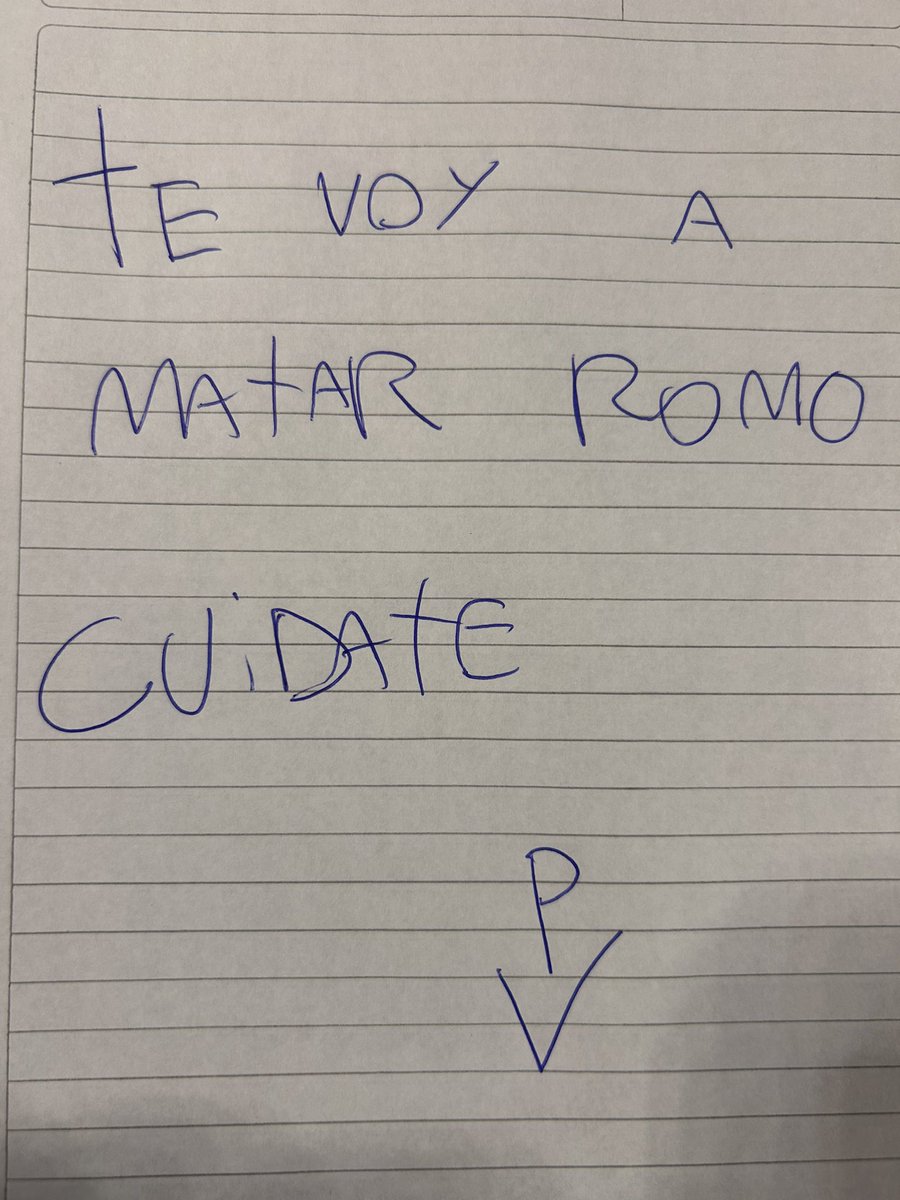 tE VOY A
MAtAR ROMO
CUiDAtE
P
V